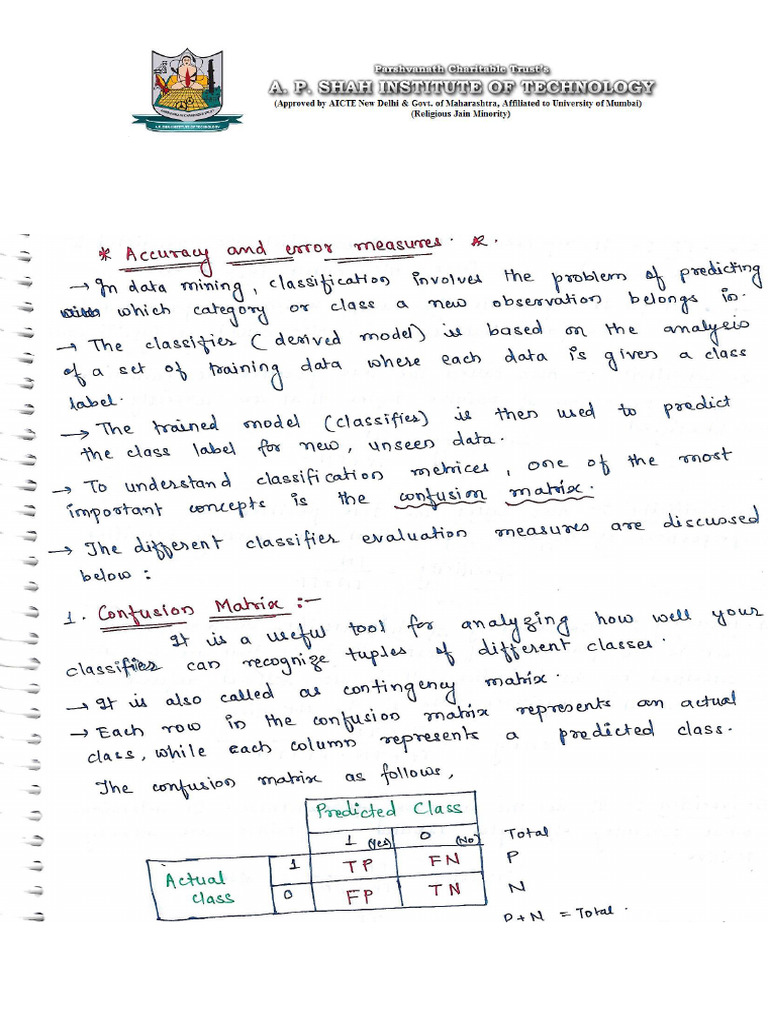 Parshvanath Charitable Trust's
A. P. SHAH INSTITUTE OF TECHNOLOGY
(Approved by AICTE New Delhi & Govt. of Maharashtra, Affiliated to University of Mumbai)
(Religious Jain Minority)
A.P. SHAH INSTITUTE OF TECHNOLOGY
* Accuracy and error measures. *.
→ In data mining, classification involves the problem of predicting
which category or class a new observation belongs in.
→ The classifier (derived model) is based on the analysis
of a set of training data where each data is given a class
label.
→ The trained model (classifier) is then used to predict
the class label for new, unseen data.
→ To understand classification metrices, one of the most
important concepts is the confusion matrix.
→ The different classifier evaluation measures are discussed
below :
1. Confusion Matrix :-
It is a useful tool for analyzing how well your
classifier can recognize tuples of different classes.
→ It is also called as contingency matrix.
→ Each row in the confusion matrix represents an actual
class, while each column represents a predicted class.
The confusion matrix as follows,
Predicted Class
1 (Yes) 0 (No) Total
Actual class 1 TP FN P
0 FP TN N
P+N = Total.